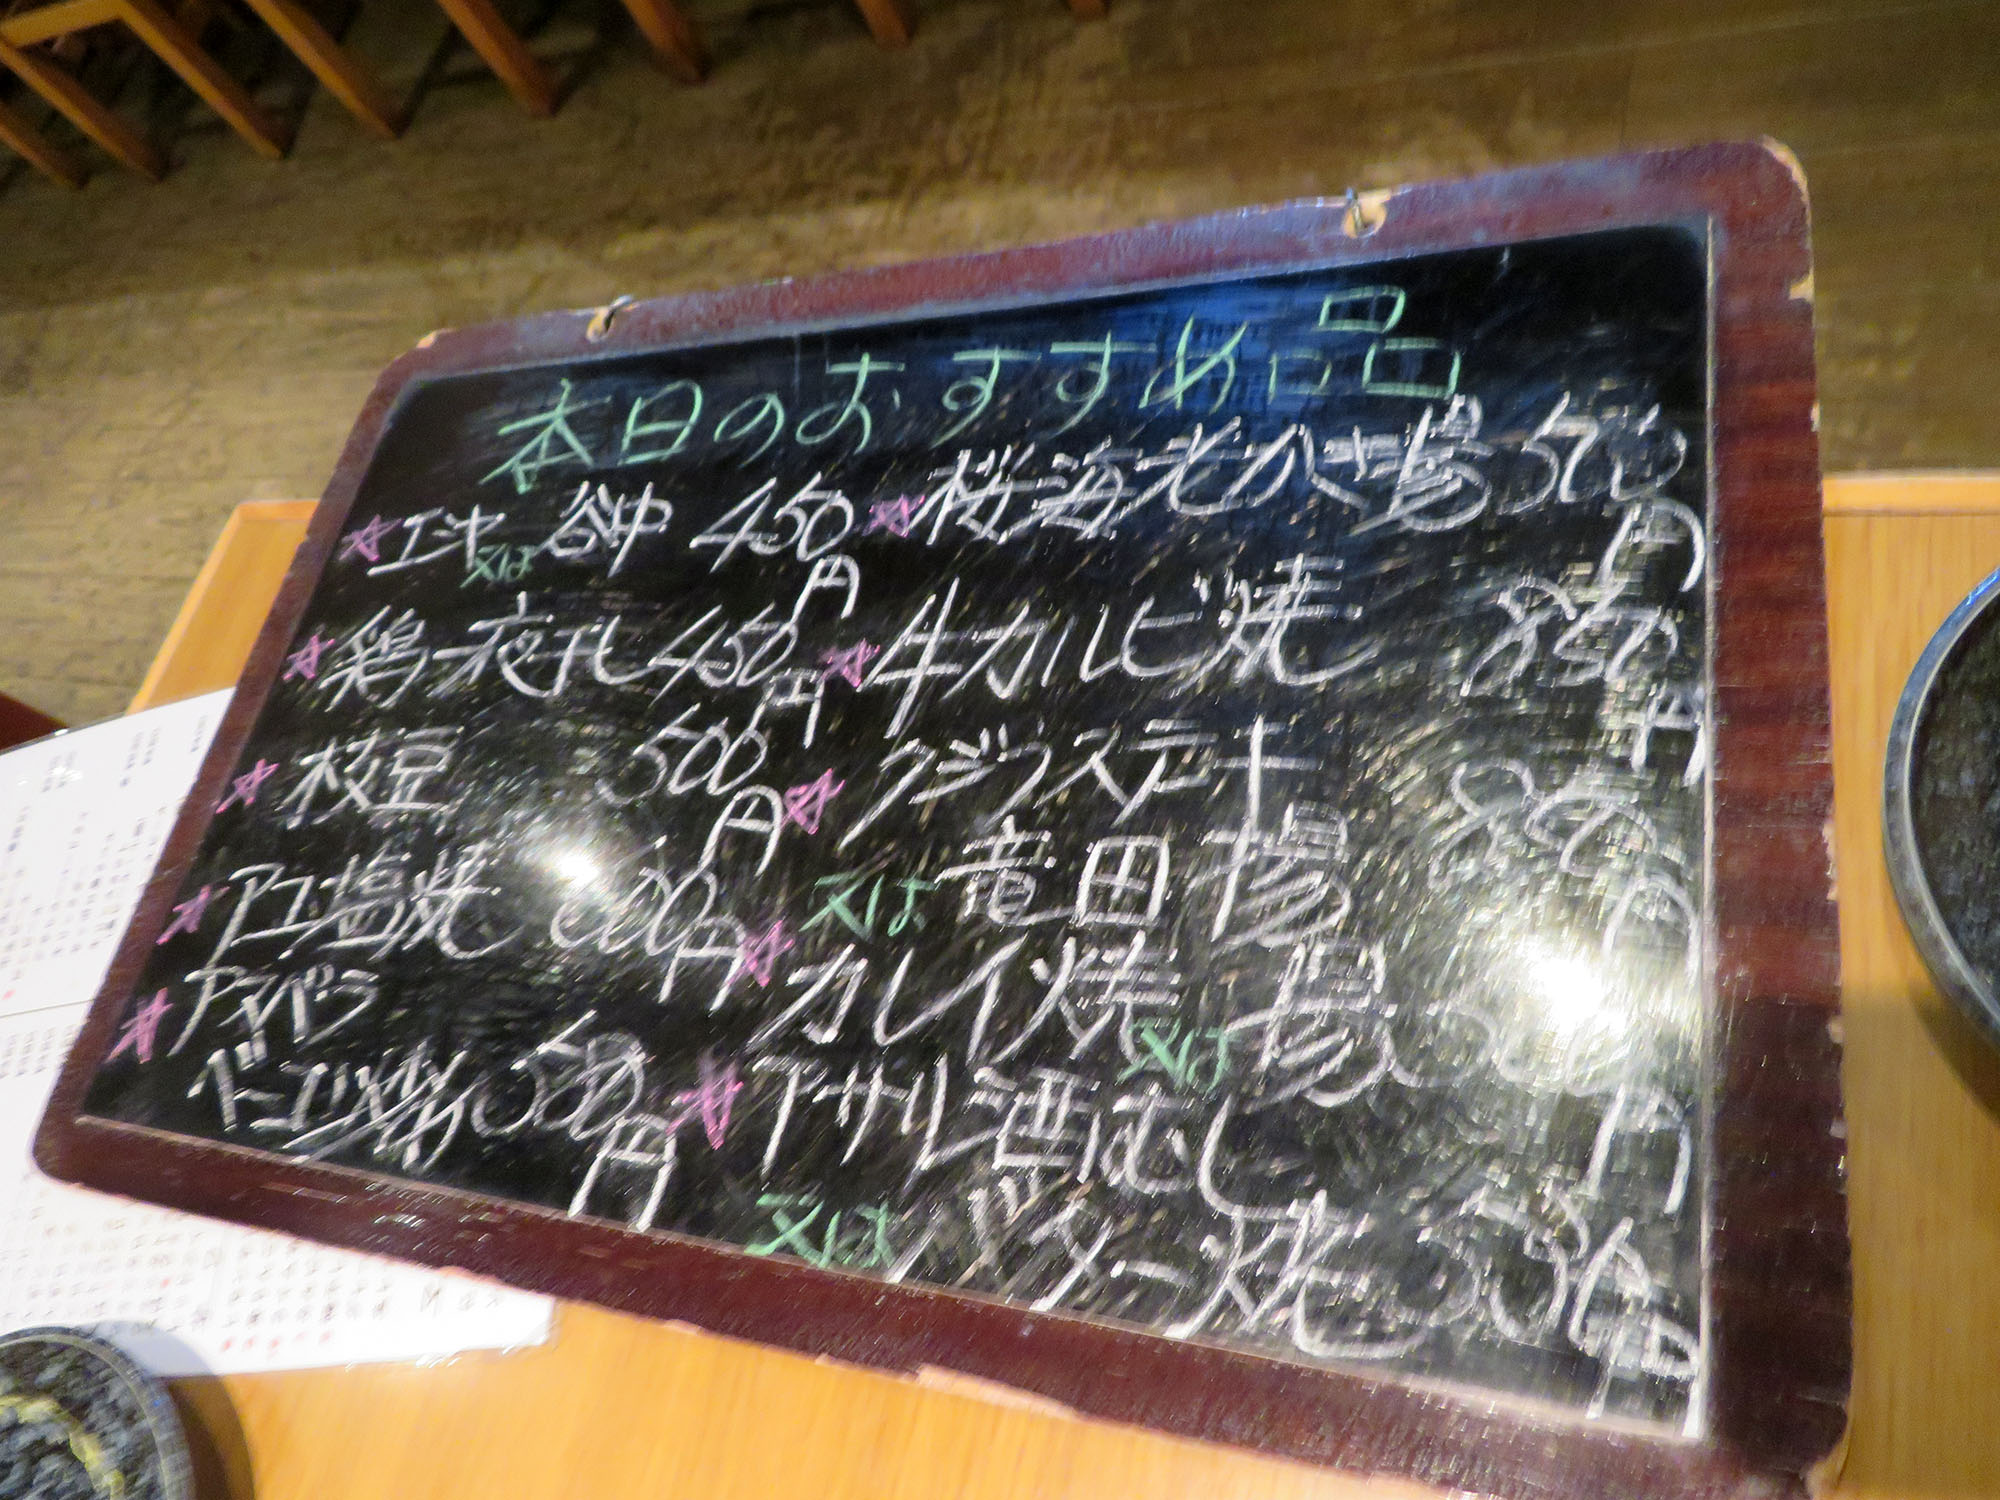 本日のおすすめ品
☆ エシャ
又は
☆ 鶏一夜干し 450円
☆ 枝豆 500円
☆ アユ塩焼 600円
☆ アスパラ
ベーコン炒め 550円
☆ 桜海老かき揚 550円
☆ 牛カルビ焼 850円
☆ クジラステーキ
又は 竜田揚 880円
☆ カレイ焼 又は 揚
☆ アサリ酒むし
又は バター焼 550円